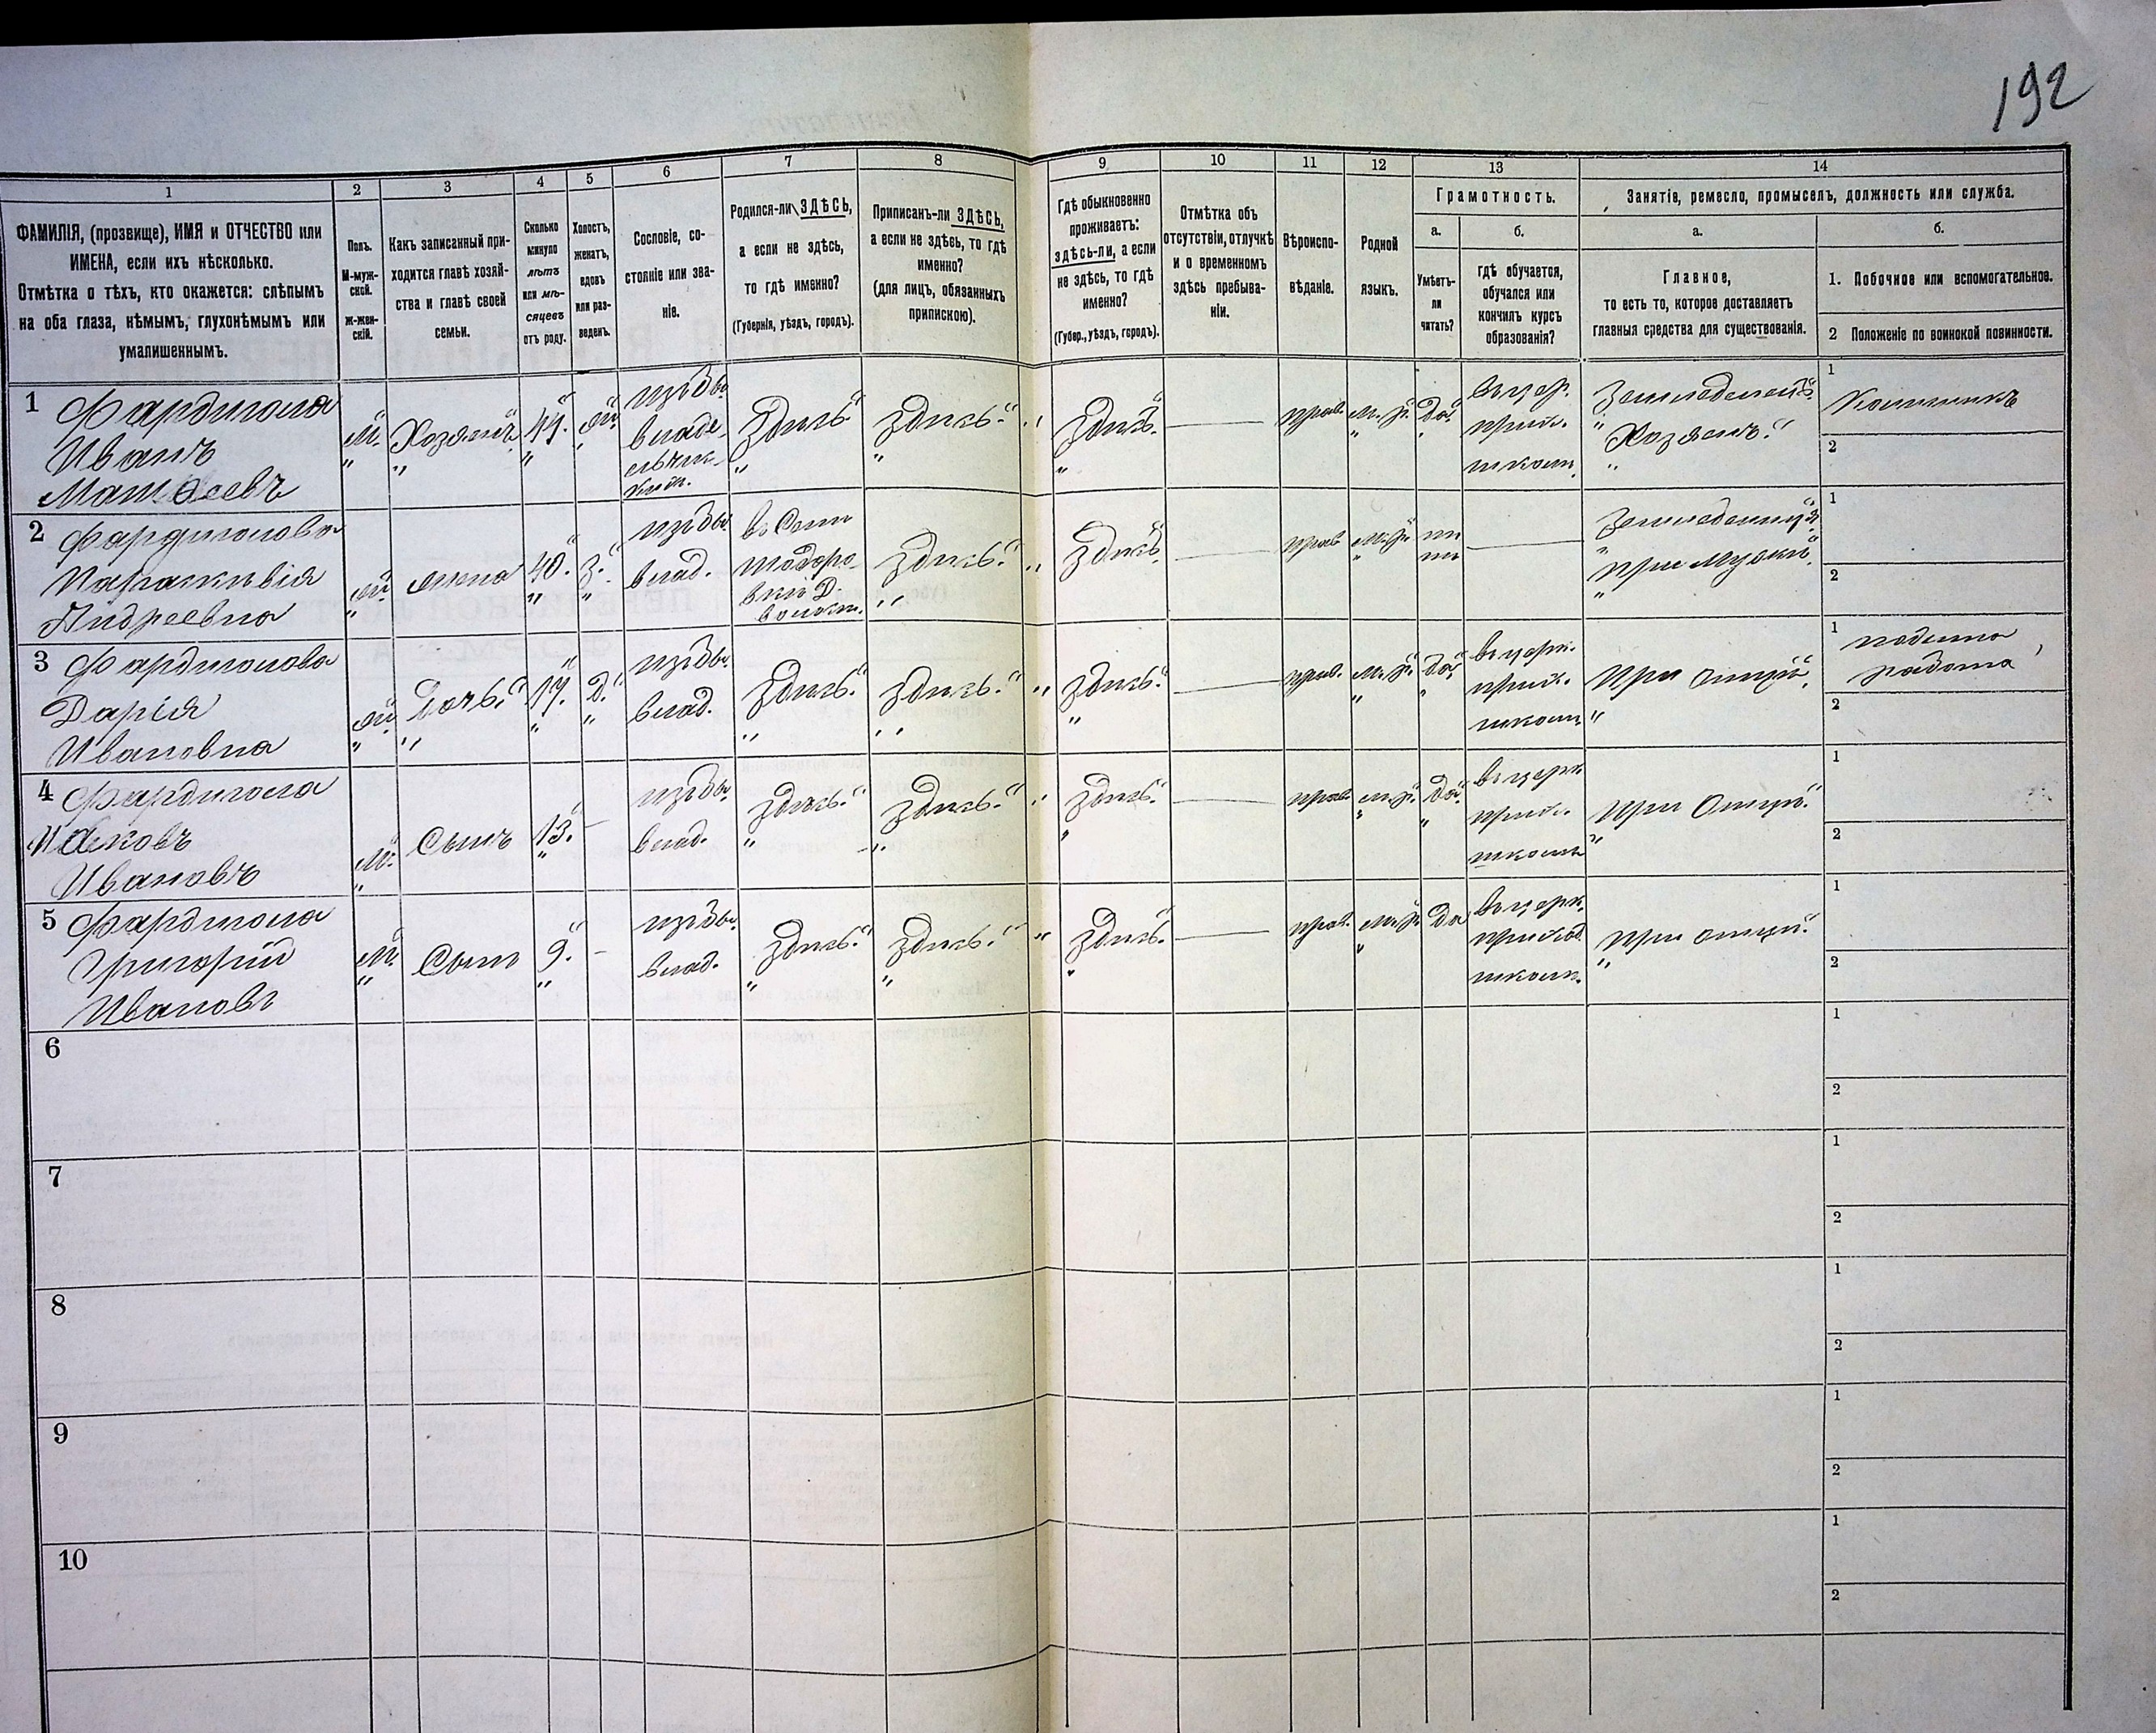 192
1 2 3 4 5 6 7 8 9 10 11 12 13 14
ФАМИЛІЯ, (прозвище), ИМЯ и ОТЧЕСТВО или
ИМЕНА, если ихъ нѣсколько.
Отмѣтка о тѣхъ, кто окажется: слѣпымъ
на оба глаза, нѣмымъ, глухонѣмымъ или
умалишеннымъ.
Полъ.
М-муж-
ской.
ж-жен-
скій.
Какъ записанный при-
ходится главѣ хозяй-
ства и главѣ своей
семьи.
Сколько
минуло
лѣтъ
или мѣ-
сяцевъ
отъ роду.
Холостъ,
женатъ,
вдовъ
или раз-
веденъ.
Сословіе, со-
стояніе или зва-
ніе.
Родился-ли ЗДѢСЬ,
а если не здѣсь,
то гдѣ именно?
(Губернія, уѣздъ, городъ).
Приписанъ-ли ЗДѢСЬ,
а если не здѣсь, то гдѣ
именно?
(для лицъ, обязанныхъ
припискою).
Гдѣ обыкновенно
проживаетъ:
здѣсь-ли, а если
не здѣсь, то гдѣ
именно?
(Губер., уѣздъ, городъ).
Отмѣтка объ
отсутствіи, отлучкѣ
и о временномъ
здѣсь пребыва-
ніи.
Вѣроиспо-
вѣданіе.
Родной
языкъ.
Грамотность.
а.
Умѣетъ-
ли
читать?
б.
гдѣ обучается,
обучался или
кончилъ курсъ
образованія?
Занятіе, ремесло, промыселъ, должность или служба.
а.
Главное,
то есть то, которое доставляетъ
главныя средства для существованія.
б.
1. Побочное или вспомогательное.
2 Положеніе по воинской повинности.
1 Фардигола
Иванъ
Матѳеевъ
М. Хозяинъ 44.
изъ бы.
владе-
здѣсь здѣсь здѣсь
прав. м. р. да
въ цер.
прих.
школѣ
Земледелецъ
Хозяинъ
1
2
2 Фардиголова
Параскѣвія
Андреевна
жена 40. з.
изъ бы.
влад.
здѣсь здѣсь
прав. м. р.
при мужѣ
1
2
3 Фардиголова
Дарія
Ивановна
Дочь 17. д.
изъ бы.
влад.
здѣсь здѣсь здѣсь
прав. м. р. да
въ церк.
прих.
школѣ
при отцѣ
1 работа
2
4 Фардигола
Иаковъ
Ивановъ
М. Сынъ 13. -
изъ бы.
влад.
здѣсь здѣсь здѣсь
прав. м. р. да
въ церк.
прих.
школѣ
при отцѣ
1
2
5 Фардигола
Григорій
Ивановъ
М. Сынъ 9. -
изъ бы.
влад.
здѣсь здѣсь здѣсь
прав. м. р. да
въ церк.
приход.
школѣ
при отцѣ
1
2
6
1
2
7
1
2
8
1
2
9
1
2
10
1
2